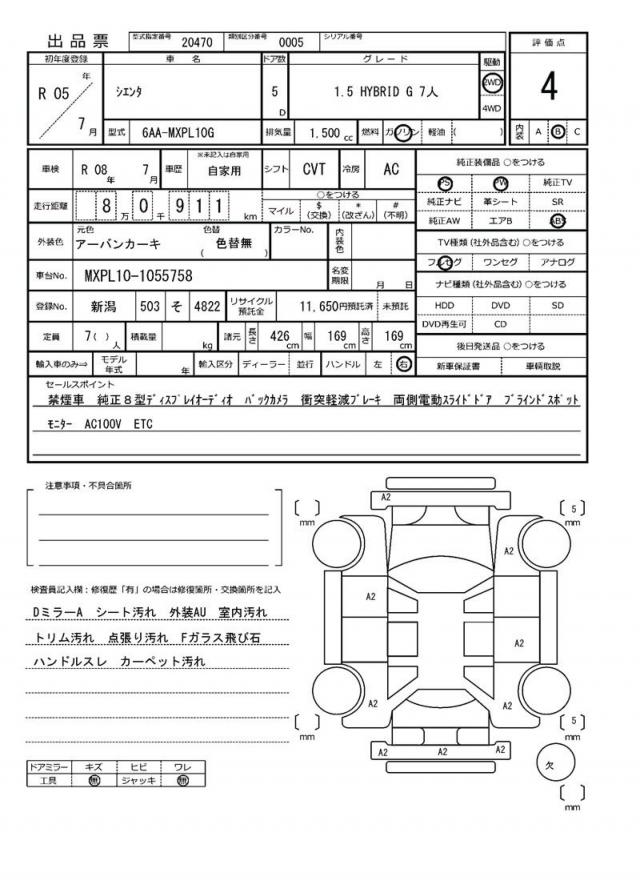 出品票 型式指定番号 20470 類別区分番号 0005 シリアル番号
評価点
4
内装 A B C
初年度登録 車名 ドア数 グレード 駆動
R 05 年 7 月 シエンタ 5 D 1.5 HYBRID G 7人 2WD 4WD
型式 6AA-MXPL10G 排気量 1,500 cc 燃料 ガソリン 軽油 ( )
車検 R 08 年 7 月 車歴 ※未記入は自家用 自家用 シフト CVT 冷房 AC
走行距離 8 万 0 千 9 1 1 km ○をつける
マイル $(交換) *(改ざん) #(不明)
外装色 元色 アーバンカーキ 色替 ( 色替無 ) カラーNo. 内装色
車台No. MXPL10-1055758 名変期限 月 日
登録No. 新潟 503 そ 4822 リサイクル預託金 11,650円預託済 未預託
定員 7( ) 人 積載量 kg 諸元 長さ 426 cm 幅 169 cm 高さ 169 cm
輸入車のみ⇒ モデル年式 年 輸入区分 ディーラー 並行 ハンドル 左 右
純正装備品 ○をつける
PS PW 純正TV
純正ナビ 革シート SR
純正AW エアB ABS
TV種類(社外品含む)○をつける
フルセグ ワンセグ アナログ
ナビ種類(社外品含む)○をつける
HDD DVD SD
DVD再生可 CD
後日発送品 ○をつける
新車保証書 車輌取説
セールスポイント
禁煙車 純正8型ディスプレイオーディオ バックカメラ 衝突軽減ブレーキ 両側電動スライドドア ブラインドスポット
モニター AC100V ETC
注意事項・不具合箇所
検査員記入欄:修復歴「有」の場合は修復箇所・交換箇所を記入
DミラーA シート汚れ 外装AU 室内汚れ
トリム汚れ 点張り汚れ Fガラス飛び石
ハンドルスレ カーペット汚れ
ドアミラー キズ ヒビ ワレ
工具 無 ジャッキ 無
A2
[ ] mm
[ 5 ] mm
A2
A2
A2
A2
A2
[ ] mm
[ 5 ] mm
A2 A2 A2
欠
[ ] mm